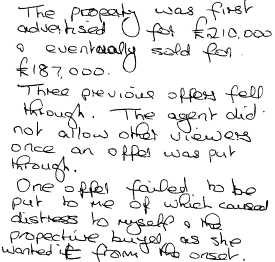 The property was first
advertised for £210,000
& eventually sold for
£187,000.
Three previous offers fell
through. The agent did
not allow other viewers
once an offer was put
through.
One offer failed to be
put to me of which caused
distress to myself & the
propective buyer as she
wanted it from the onset.